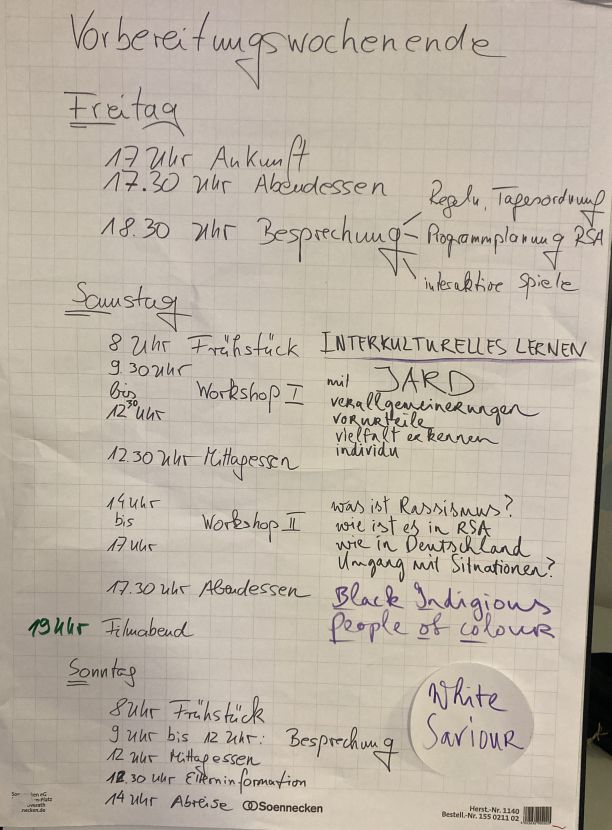 Vorbereitungswochenende
Freitag
17 Uhr Ankunft
17.30 Uhr Abendessen
18.30 Uhr Besprechung
Regeln, Tagesordnung
Programmplanung RSA
interaktive Spiele
Samstag
8 Uhr Frühstück
9.30 Uhr
bis Workshop I
12 30 Uhr
INTERKULTURELLES LERNEN
mit JARD
verallgemeinerungen
vorurteile
vielfalt erkennen
individu
12.30 Uhr Mittagessen
14 Uhr
bis Workshop II
17 Uhr
was ist Rassismus?
wie ist es in RSA
wie in Deutschland
Umgang mit Situationen?
17.30 Uhr Abendessen
Black Indigious
People of colour
19 Uhr Filmabend
Sonntag
8 Uhr Frühstück
9 Uhr bis 12 Uhr: Besprechung
12 Uhr Mittagessen
12.30 Uhr Elterninformation
14 Uhr Abreise
White
Saviour
Soennecken
Herst.-Nr. 1140
Bestell.-Nr. 155 0211 02